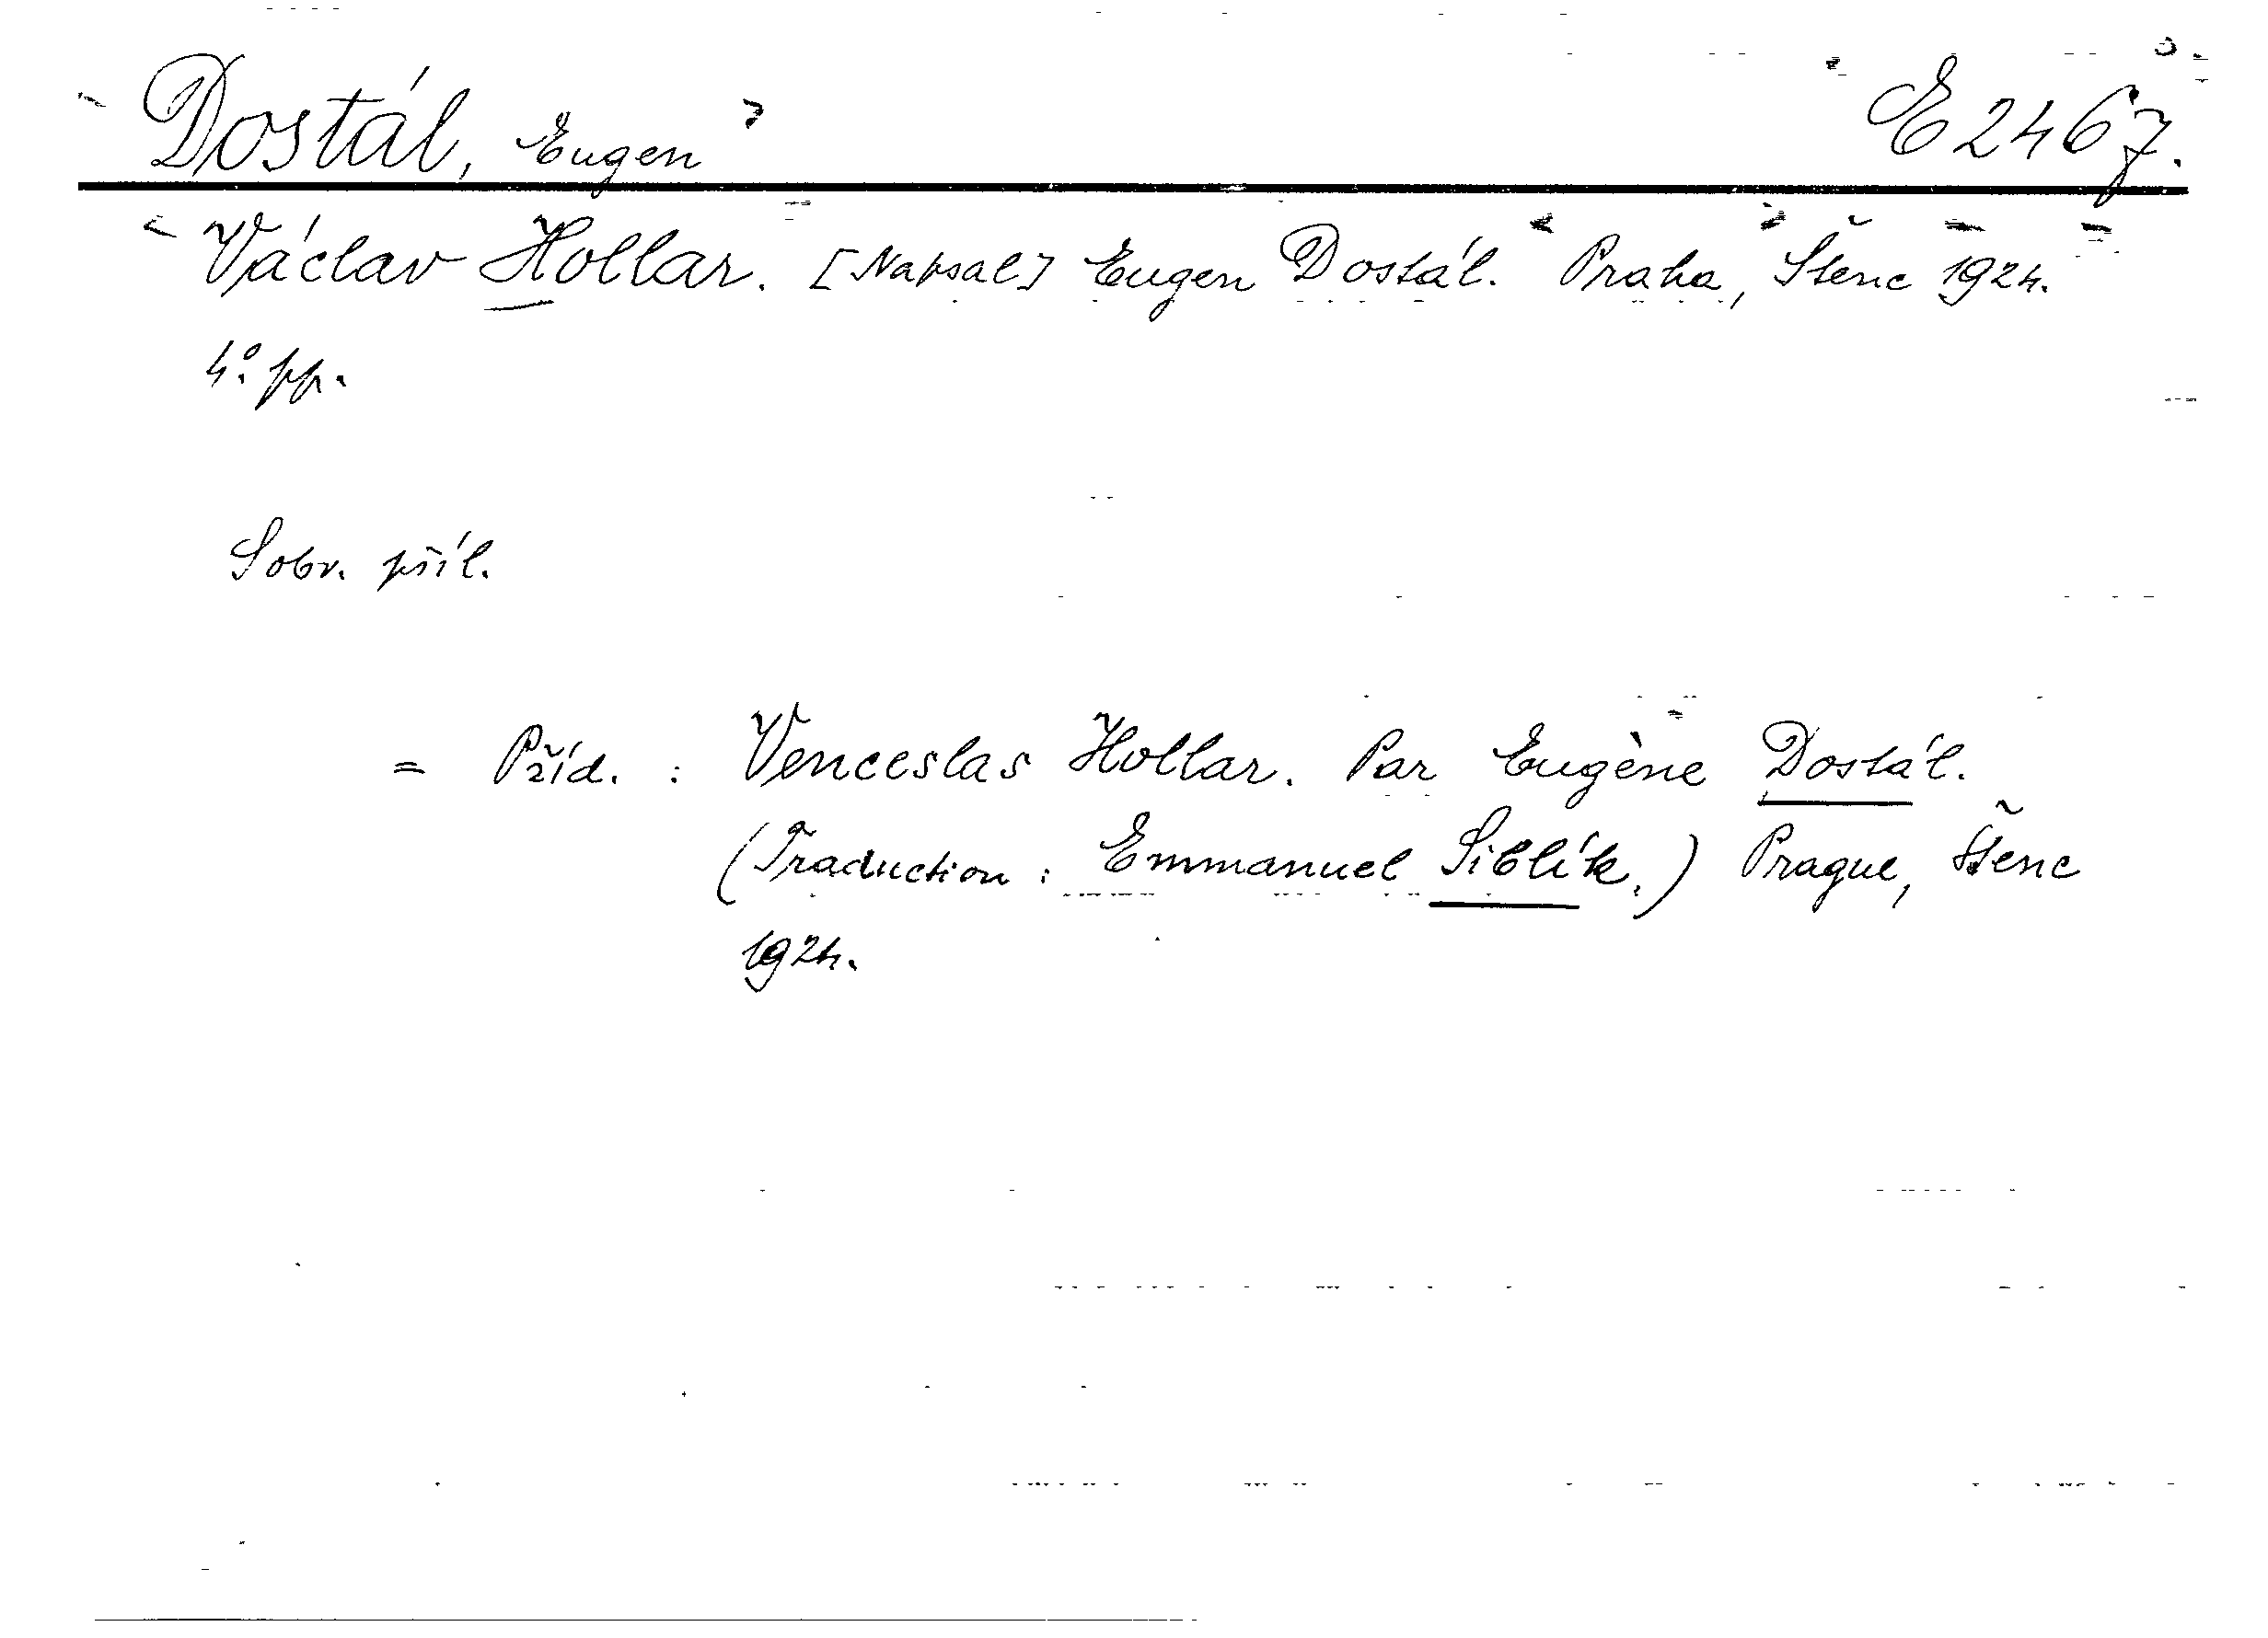 Dostál, Eugen E 2467.
Václav Hollar. [Napsal] Eugen Dostál. Praha, Štenc 1924.
4°. pp.
S obr. příl.
= Příd. : Venceslas Hollar. Par Eugène Dostál.
(Traduction : Emmanuel Siblík.) Prague, Štenc
1924.